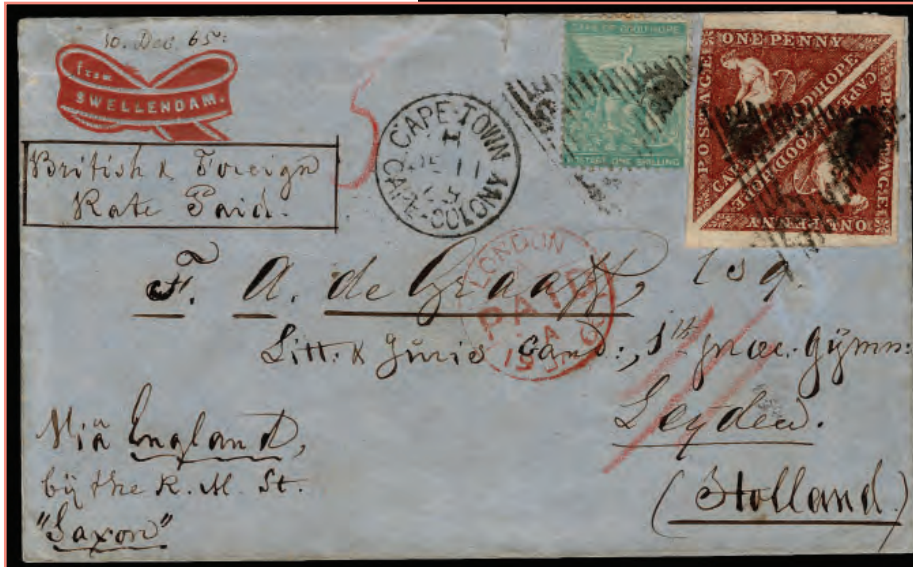 10. Dec. 65:
from
SWELLENDAM.
British & Foreign
Rate Paid.
CAPE-TOWN
DE 11
CAPE-COLONY
CAPE OF GOOD HOPE
POSTAGE ONE SHILLING
ONE PENNY
POSTAGE
CAPE OF GOOD HOPE
CAPE OF GOOD HOPE
POSTAGE
ONE PENNY
LONDON
PAID
F. A. de Graaff, Esq.
Litt. & Juris Cand:, Gymn:
Leyden.
(Holland)
Viâ England,
by the R. M. St.
"Saxon"